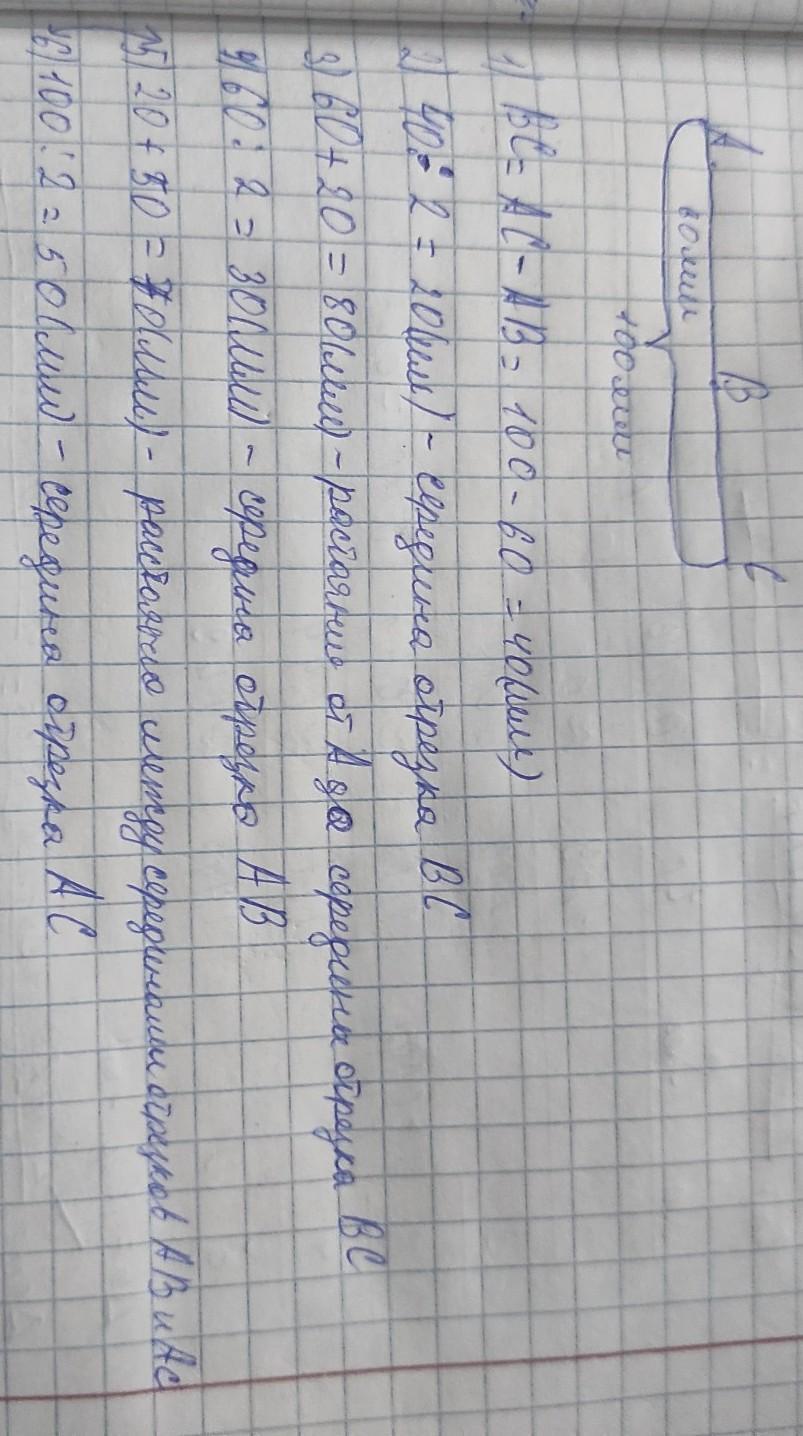 A B C
60мм
100мм
1) BC = AC - AB = 100 - 60 = 40(мм)
2) 40 : 2 = 20(мм) - середина отрезка BC
3) 60 + 20 = 80(мм) - растояние от A до середины отрезка BC
4) 60 : 2 = 30(мм) - середина отрезка AB
5) 20 + 50 = 70(мм) - расстояние между серединами отрезков AB и AC
6) 100 : 2 = 50(мм) - середина отрезка AC